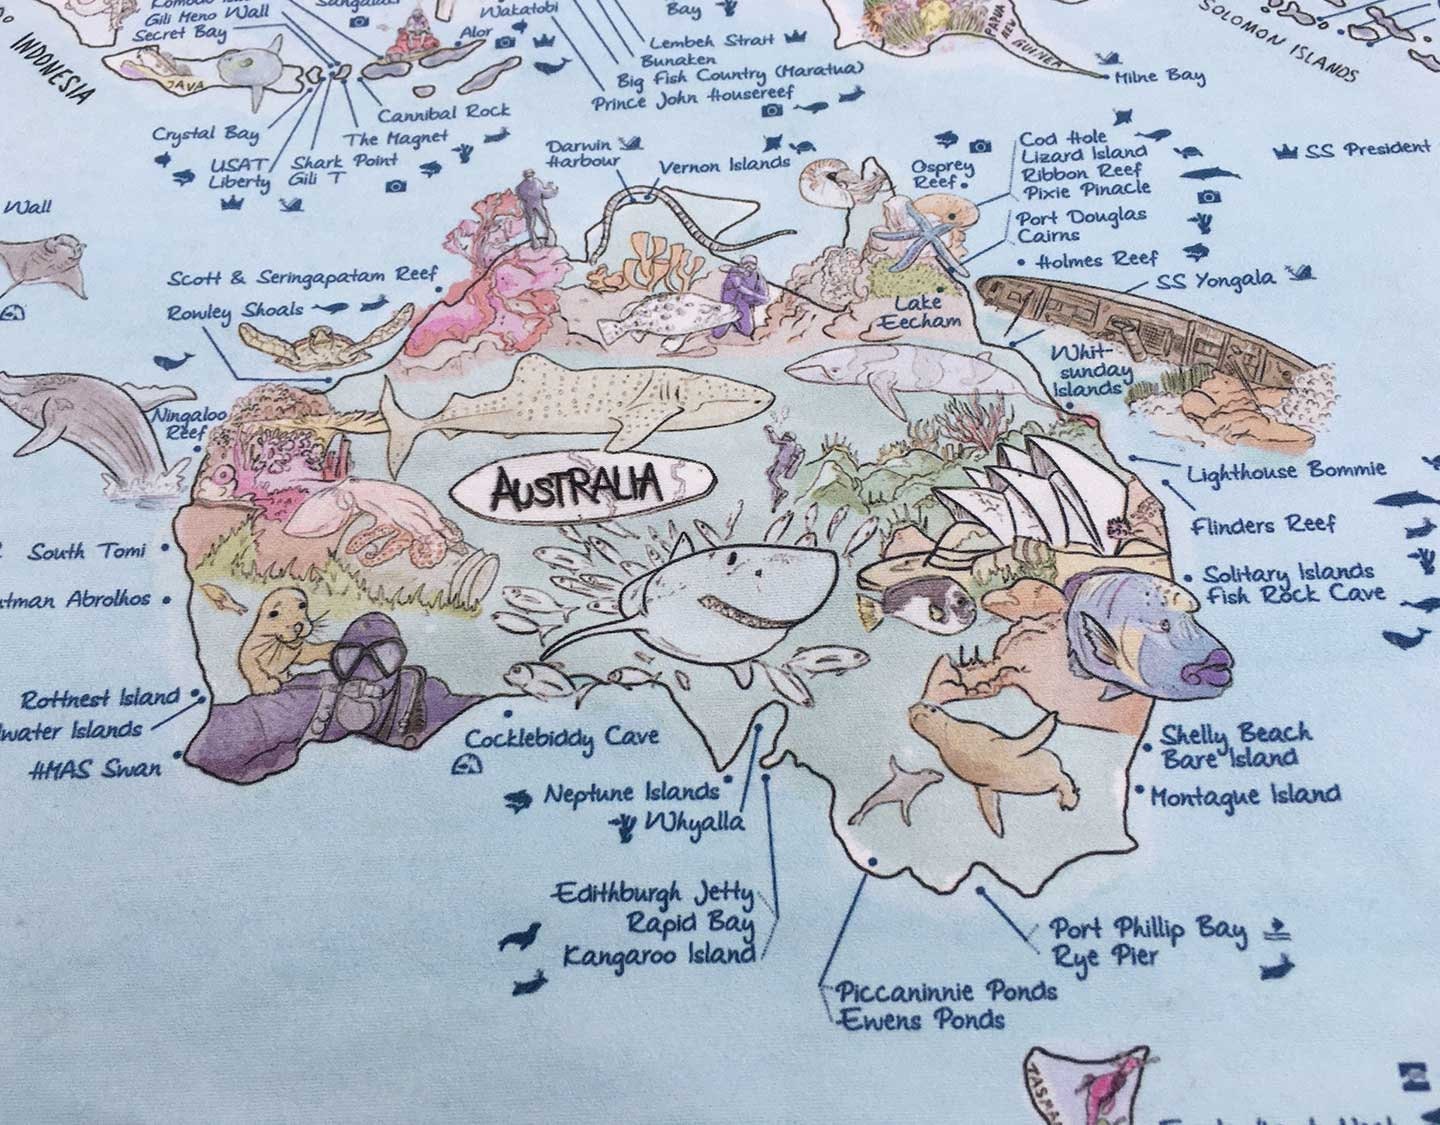 Gili Meno Wall
Secret Bay
Wakatobi
Bay
Alor
Lembeh Strait
Bunaken
Big Fish Country (Maratua)
Prince John Housereef
INDONESIA
JAVA
PAPUA
NEW
GUINEA
SOLOMON ISLANDS
Milne Bay
Cannibal Rock
Crystal Bay
The Magnet
USAT
Liberty
Shark Point
Gili T
Darwin
Harbour
Vernon Islands
Osprey
Reef
Cod Hole
Lizard Island
Ribbon Reef
Pixie Pinacle
SS President
Port Douglas
Cairns
Holmes Reef
Wall
Scott & Seringapatam Reef
Rowley Shoals
Lake
Eecham
SS Yongala
Whit-
sunday
Islands
Ningaloo
Reef
AUSTRALIA
Lighthouse Bommie
Flinders Reef
South Tomi
tman Abrolhos
Solitary Islands
Fish Rock Cave
Rottnest Island
water Islands
HMAS Swan
Cocklebiddy Cave
Shelly Beach
Bare Island
Neptune Islands
Whyalla
Montague Island
Edithburgh Jetty
Rapid Bay
Kangaroo Island
Port Phillip Bay
Rye Pier
Piccaninnie Ponds
Ewens Ponds
TASMA